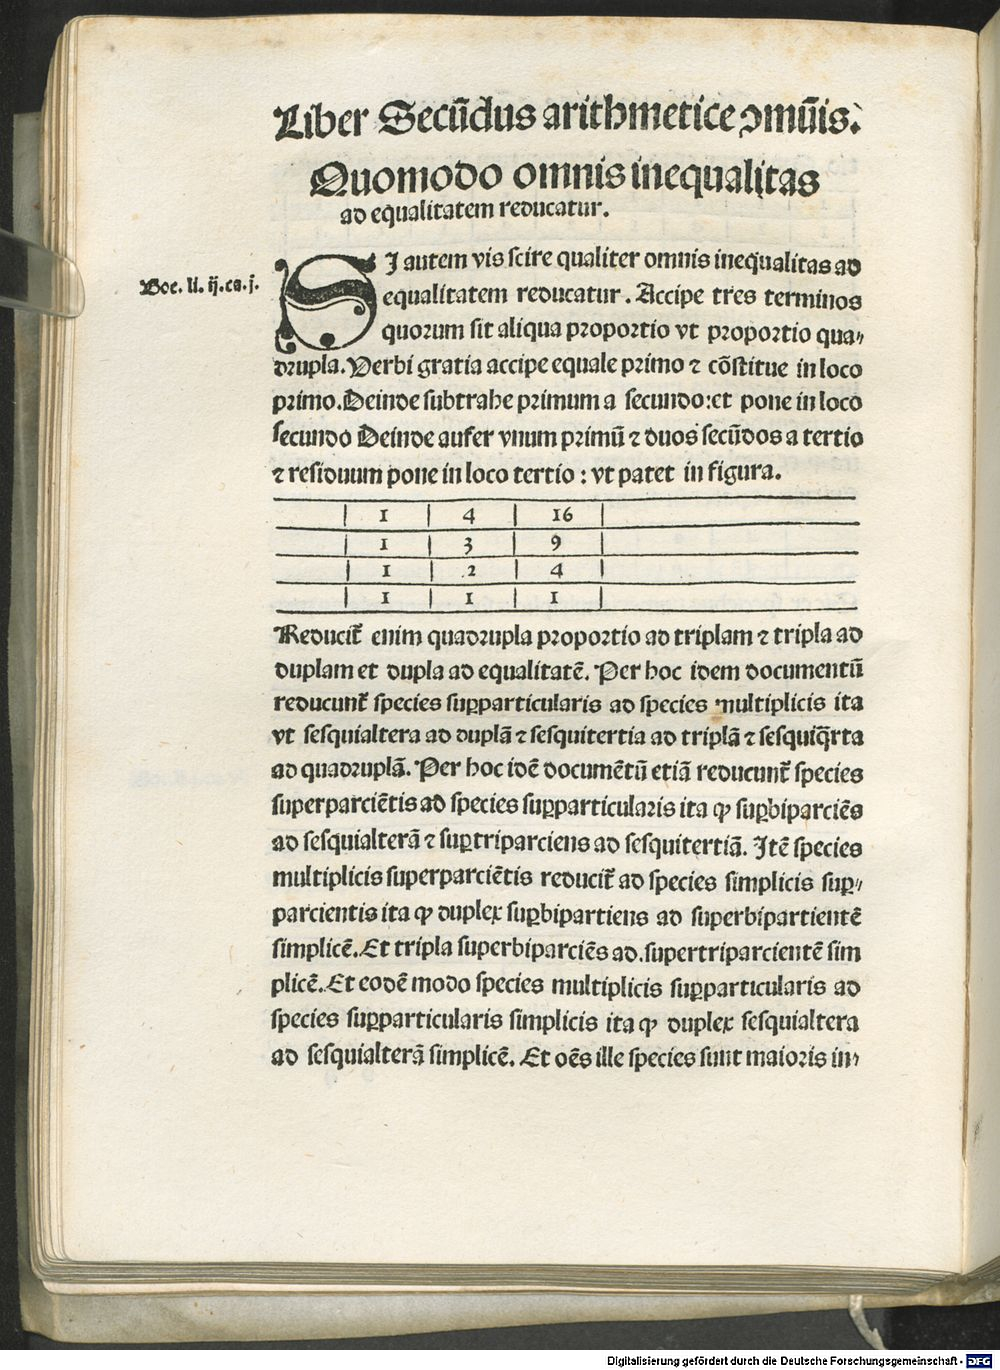 Liber Secūdus arithmetice ↄmūis.
Quomodo omnis inequalitas
ad equalitatem reducatur.
Boe. li. ij. ca. j.
SI autem vis scire qualiter omnis inequalitas ad
equalitatem reducatur. Accipe tres terminos
quorum sit aliqua proportio vt proportio qua⸗
drupla. Verbi gratia accipe equale primo ⁊ cōstitue in loco
primo. Deinde subtrahe primum a secundo: et pone in loco
secundo Deinde aufer vnum primū ⁊ duos secūdos a tertio
⁊ residuum pone in loco tertio: vt patet in figura.
1 4 16
1 3 9
1 2 4
1 1 1
Reducit᷑ enim quadrupla proportio ad triplam ⁊ tripla ad
duplam et dupla ad equalitatē. Per hoc idem documentū
reducunt᷑ species suꝑparticularis ad species multiplicis ita
vt sesquialtera ad duplā ⁊ sesquitertia ad triplā ⁊ sesquiq̄rta
ad quadruplā. Per hoc idē documētū etiā reducunt᷑ species
superparciētis ad species suꝑparticularis ita ꝙ suꝑbiparciēs
ad sesquialterā ⁊ suꝑtriparciens ad sesquitertiā. Itē species
multiplicis superparciētis reducit᷑ ad species simplicis suꝑ⸗
parcientis ita ꝙ duplex suꝑbipartiens ad superbipartientē
simplicē. Et tripla superbiparciēs ad. supertriparcientē sim
plicē. Et eodē modo species multiplicis suꝑparticularis ad
species suꝑparticularis simplicis ita ꝙ duplex sesquialtera
ad sesquialterā simplicē. Et oēs ille species sunt maioris in⸗
Digitalisierung gefördert durch die Deutsche Forschungsgemeinschaft - DFG